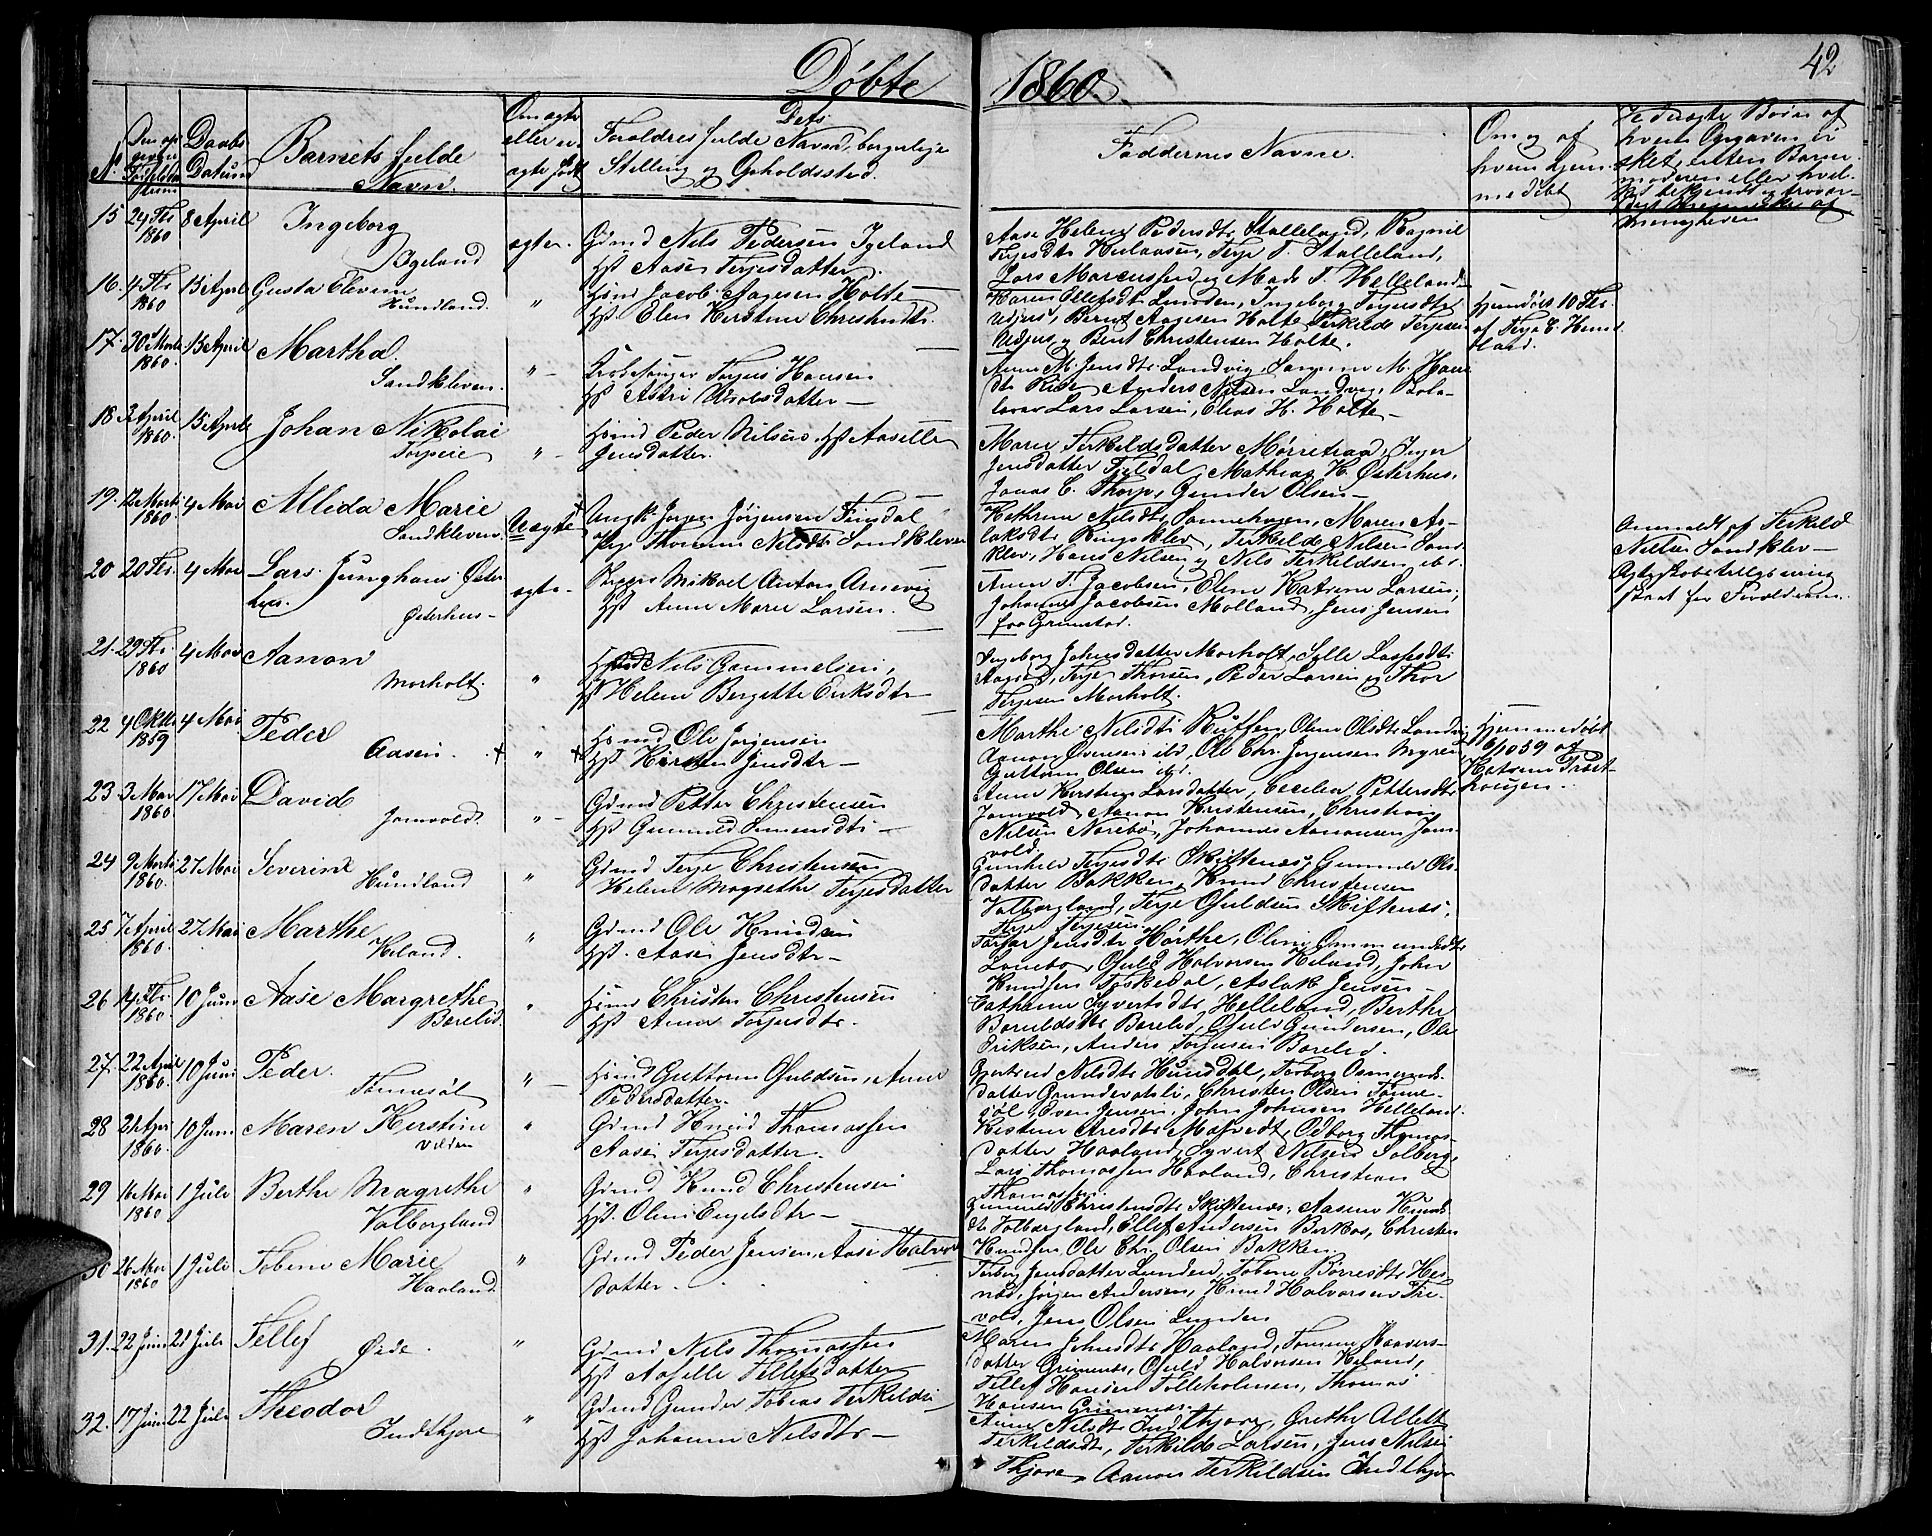 Døbte 1860.
42
No
Daabs Datum
Barnets fulde Navn
Om ægte eller uægte født
Dets Forældres fulde Navne, borgerlige Stilling og Opholdssted.
Faddernes Navne.
Om og af hvem hjemmedøbt
15 24 Fbr 1860 8 April Ingeborg Igeland ægte. Gdmd Nils Pedersen Igeland
Hst Aase Terjesdatter.
Aase Helene Pedersdtr Stalleland, Ragnil
Terjesdtr Heilaasen, Terje T. Stalleland,
Lars Marcussen og Mads T. Helleland
16. 4 Fbr 1860 15 April Gusta Elevine Hundland. " Hsmd Jacob Aagesen Holte
Hst. Elen Kirstine Christensdtr.
Karen Ellefsdtr Lunden, Ingeborg Terjesdtr
Udjus, Bernt Aagesen Holte, Terkild Terjesen
Udjus, og Bent Christensen Holte.
Hjemdøbt 10 Fbr.
af Terje E. Hundland.
17. 30 Marts 1860 15 April Martha. Sandkleven. "
Terjus Hansen
Hst Astri Jacobsdatter
Anne M. Jensdtr Landvig,
Anders Nilsen Landvig,
Lars Larsen, Elias H. Holte
18 3 April 1860. 15 April Johan Nikolai Torpeie " Hsmd Peder Nilsen, Hst Aaselle
Jensdatter.
Maren Terkildsdatter Mørretraa, Inger
Jensdatter Fjeldal, Mathias H. Østerhus,
Jonas C. Thorp, Gunder Olsen
19. 12 Marts 1860 4 Mai Alleda Marie Sandkleven. Uægte Ungk. Jørgen Jørgensen Fiesdal
Pige Thomine Nilsdtr Sandkleven
Kathrine Nilsdtr Sannehagen, Maren Aslaksdtr
Ringsklev, Terkild Nilsen Sandklev,
Hans Nilsen og Nils Terkildsen ibd.
Anmeldt af Terkild
Nilsen Sandklev
20 20 Fbr. 4 Mai Lars Junghans Østerhus. Østerhus ægte. Skipper Mikael Anton Arnevig
Hst Anne Marie Larsen.
Anne T. Jacobsen, Oline Katrine Larsen,
Johannes Jacobsen Molland, Jens Jensen
fra Grimstad.
21. 29 Fbr. 1860 4 Mai Aanon Morholt. " Nils Gummelsen,
Hst Helene Bergette Eriksdtr
Ingeborg Johnsdatter Morholt, Sille Lassesdtr
Terje Thorsen, Peder Larsen og Thor
Terjesen Morholt.
22 4 Oktbr 1859 4 Mai Peder Aasen. + " + Hsmd Ole Jørgensen
Hst Kirsten Jensdtr
Marthe Nilsdtr Ruffen, Oline Olsdtr Landvig
Aanon Svensen ibd, Ole Chr. Jørgensen Myren
Guttorm Olsen ibd.
Hjemmedøbt
6/10 59 af
Katrine
23 3 Mar 1860. 17 Mai David Jomvold. " Gdmd Petter Christensen
Hst Gunnild
Anne Kirstine Larsdatter, Cecilie Pettersdtr
Jomvold, Aanon Kristensen, Christian
Nilsen Narebø, Johannes Aanonsen Jomvold.
24 9 Marts 1860. 27 Mai Severine Hundland " Gdmd Terje Christensen
Helene Margrethe Terjesdatter
Gunhild Terjesdtr Skiftenes, Gunnild Olsdatter
Bakken, Knud Christensen
Valborgland, Terje Guldsen Skiftenes,
Terje Terjesen.
25 7 April 1860. 27 Mai Marthe Keland. " Gdmd Ole Knudsen
Hst. Aase Jensdtr
Torbor Jensdtr Hørthe, Oline Ommundsdtr
Lonebo, Guld Halvorsen Keland, John
Knudsen Torkedal, Aslak Jensen
26 14 Fbr 1860. 10 Juni Aase Margrethe Borelid. " Hsmd Christen Christensen
Hst. Anne Terjesdtr.
Cathrine Syvertsdtr Helleland, Berthe
Baruldsdtr Borelid, Guld Gundersen, Ole
Eriksen, Anders Torjusen Borelid.
27. 22 April 1860. 10 Juni Peder. Tønnesøl " Hsmd Guttorm Guldsen, Anne
Pedersdatter.
Gjertrud Nilsdtr Hunsdal, Torborg Osmundsdatter
Grundevatsli, Christen Olsen Tønnesøl,
Even Jensen, John Johnsen Helleland.
28 21 Apr 1860. 10 Juni Maren Kirstine " Gdmd Knud Thomassen
Aase Terjesdatter.
Kistine Aresdtr Mosvedt, Odborg Thomasdatter
Haaland, Syvert Nilsen Solberg,
Lars Thomassen Haaland, Christian
Thomassen.
29 16 Mai 1860 1 Juli Berthe Magrethe Valborgland " Gdmd Knud Christensen
Hst. Oline Engelsdtr
Gunnild Christensdtr Skiftenes, Aasene Knudsdtr
Valborgland, Ellef Andersen Birkas, Christen
Knudsen, Ole Chr. Olsen Bakken
30 26 Mai 1860 1 Juli Tobine Marie Haaland. " Gdmd Peder Jensen, Aase Halvorsdatter.
Torbor Jensdatter Lunden, Tobine Børresdtr
Jørgen Andersen, Knud Halvorsen
Jens Olsen Lunden
31. 22 Juni 21 Juli Tellef Øide. " Gdmd Nils Thomassen
Hst Aaselle Tellefsdatter
Maren Johnsdtr Haaland, Tomine Haaversdatter
Grimenes, Guld Halvorsen Keland,
Tellef Hansen Tolleholmen, Thomas
Hansen Grimenes.
32. 17 Juni 22 Juli Theodor Indthjore " Gdmd Gunder Tobias Terkildsen
Hst Johanne Nilsdtr
Anne Nilsdtr Indthjore, Grethe Allett
Terkildsdtr, Terkild Larsen, Jens Nilsen
Thjore, Aanon Terkildsen Indthjor